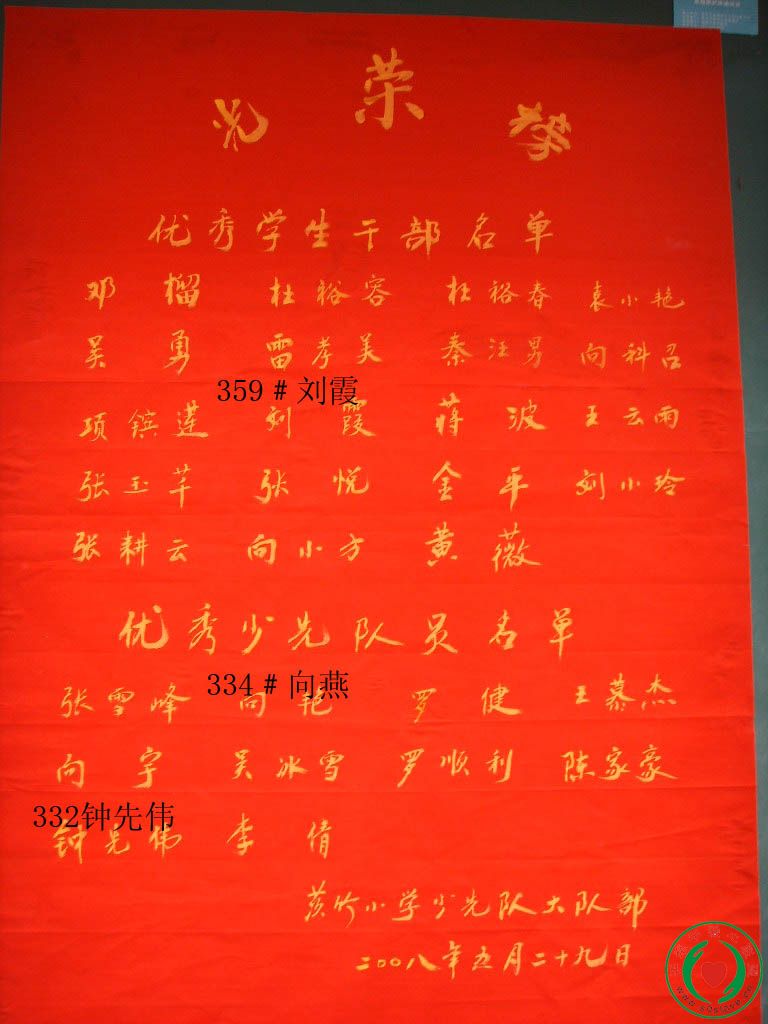 光荣榜
优秀学生干部名单
邓榴 杜裕容 杜裕春 袁小艳
吴勇 雷孝美 秦汪男 向科召
359＃刘霞
项镔莲 刘霞 蒋波 王云雨
张玉芊 张悦 金平 刘小玲
张耕云 向小方 黄薇
优秀少先队员名单
334＃向燕
张雪峰 向艳 罗健 王慕杰
向宇 吴冰雪 罗顺利 陈家豪
332钟先伟
钟先伟 李倩
黄竹小学少先队大队部
二〇〇八年五月二十九日